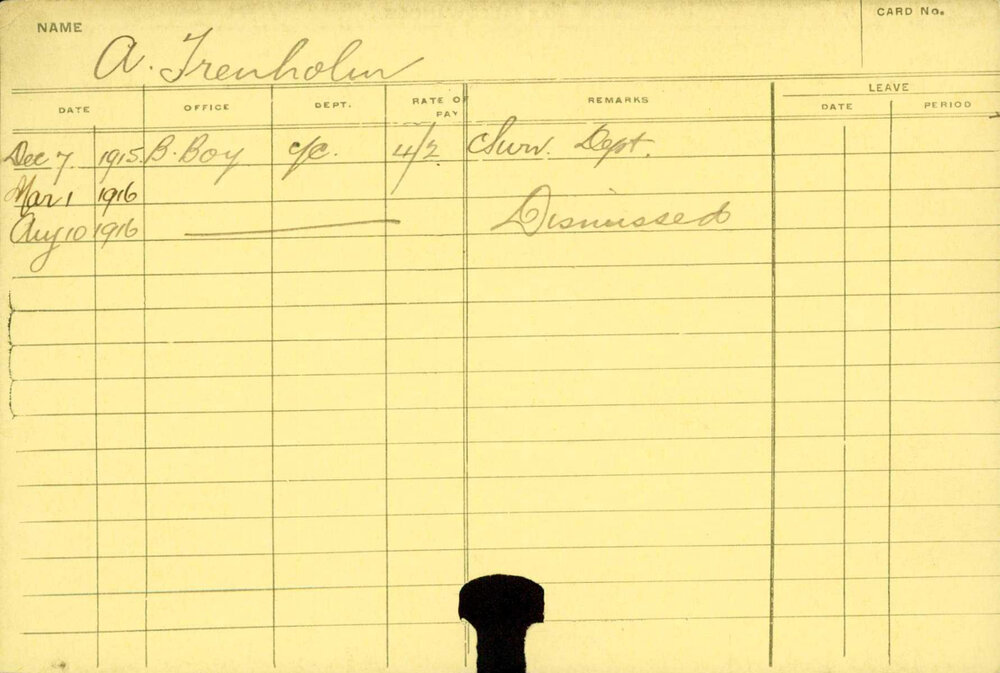 NAME
A. Trenholm
CARD No.
DATE OFFICE DEPT. RATE OF PAY REMARKS LEAVE
DATE PERIOD
Dec 7 1915 B. Boy c/c. 4/2 Surv. Dept.
Mar 1 1916
Aug 10 1916 Dismissed